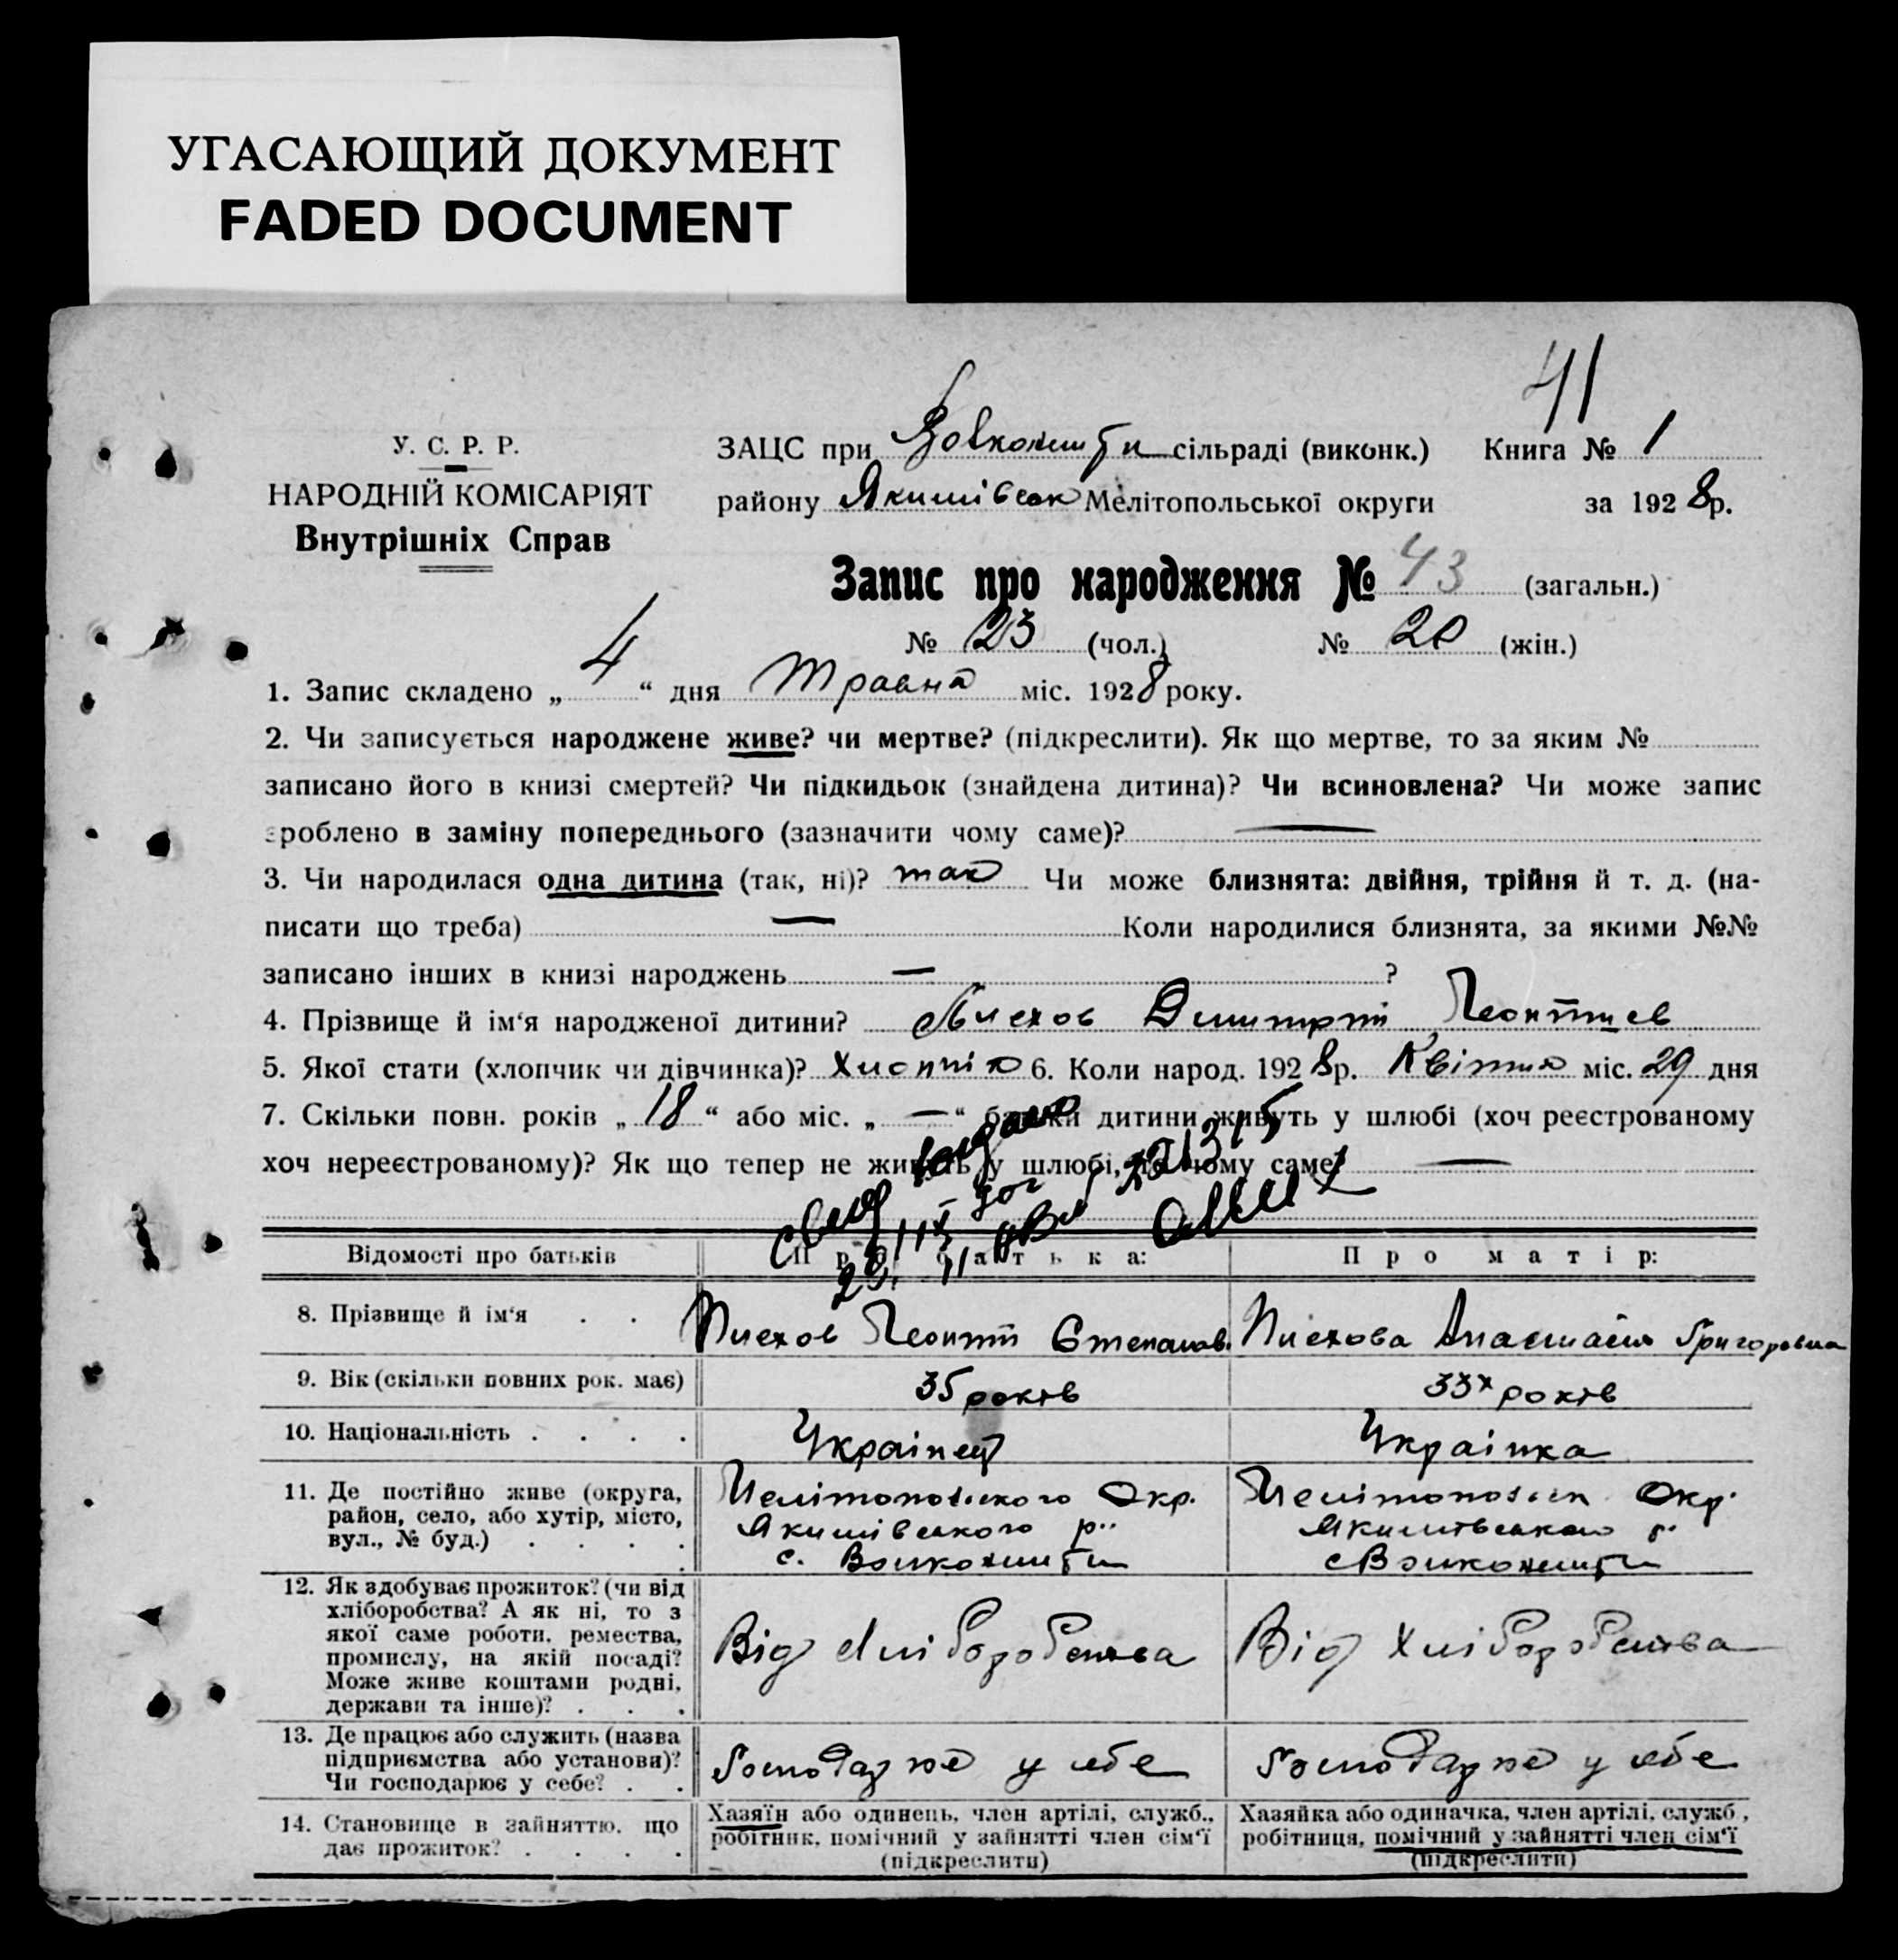 УГАСАЮЩИЙ ДОКУМЕНТ
FADED DOCUMENT
41
У. С. Р. Р.
НАРОДНІЙ КОМІСАРІЯТ
Внутрішніх Справ
ЗАЦС при сільраді (виконк.) Книга № 1
району Якимівськ Мелітопольської округи за 1928р.
Запис про народження № 43 (загальн.)
№ 23 (чол.) № 20 (жін.)
1. Запис складено „ 4 “ дня Травня міс. 1928 року.
2. Чи записується народжене живе? чи мертве? (підкреслити). Як що мертве, то за яким №
записано його в книзі смертей? Чи підкидьок (знайдена дитина)? Чи всиновлена? Чи може запис
зроблено в заміну попереднього (зазначити чому саме)? —
3. Чи народилася одна дитина (так, ні)? так Чи може близнята: двійня, трійня й т. д. (на-
писати що треба) — Коли народилися близнята, за якими №№
записано інших в книзі народжень — ?
4. Прізвище й ім‘я народженої дитини? Дмитрій
5. Якої стати (хлопчик чи дівчинка)? Хлопчік 6. Коли народ. 1928р. Квітня міс. 29 дня
7. Скільки повн. років „ 18 “ або міс. „ — “ батьки дитини живуть у шлюбі (хоч реєстрованому
хоч нереєстрованому)? Як що тепер не живуть у шлюбі, то чому саме? —
Відомості про батьків Про батька: Про матір:
8. Прізвище й ім‘я . . Леонтій Степанов. Анастасія Григоровна
9. Вік (скільки повних рок. має) 35 років 33 років
10. Національність . . . . Українец Українка
11. Де постійно живе (округа, Мелітопольского Окр. Мелітопольск Окр.
район, село, або хутір, місто, Якимівського р.. Якимівського р.
вул., № буд.) . . . . с. с
12. Як здобуває прожиток? (чи від
хліборобства? А як ні, то з
якої саме роботи, ремества, Від Хліборобства Від Хліборобства
промислу, на якій посаді?
Може живе коштами родні,
держави та інше)? . . .
13. Де працює або служить (назва
підприємства або установи)? Господарює у себе Господарює у себе
Чи господарює у себе? . .
14. Становище в зайняттю, що Хазяїн або одинець, член артілі, служб., Хазяйка або одиначка, член артілі, служб.,
дає прожиток? . . . . робітник, помічний у зайнятті член сім‘ї робітниця, помічний у зайнятті член сім‘ї
(підкреслити) (підкреслити)